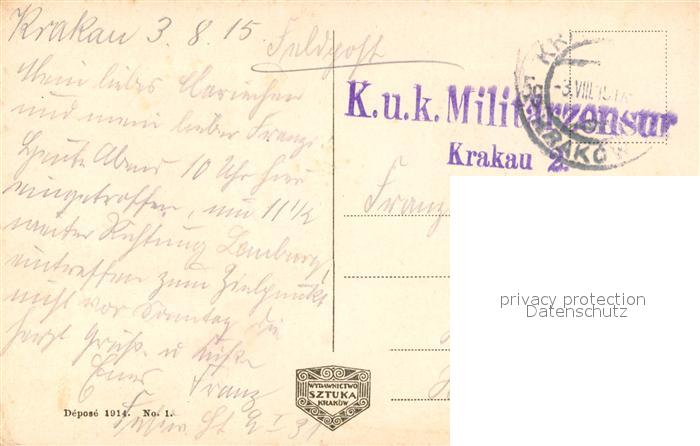 Krakau 3. 8. 15.
Feldpost
Mein liebes Clärchen
und mein lieber Franzi.
Heute Abend 10 Uhr hier
eingetroffen, um 11 1/2
weiter Richtung Lemberg,
eintreffen zum Zielpunkt
nicht vor Sonntag. Die
herzl Grüße u Küße
Euer Franz
K.u.k. Militärzensur
Krakau 2.
KRAKÓW
-3.VIII.15
Franz
privacy protection
Datenschutz
WYDAWNICTWO
SZTUKA
KRAKÓW
Déposé 1914. No. 1.